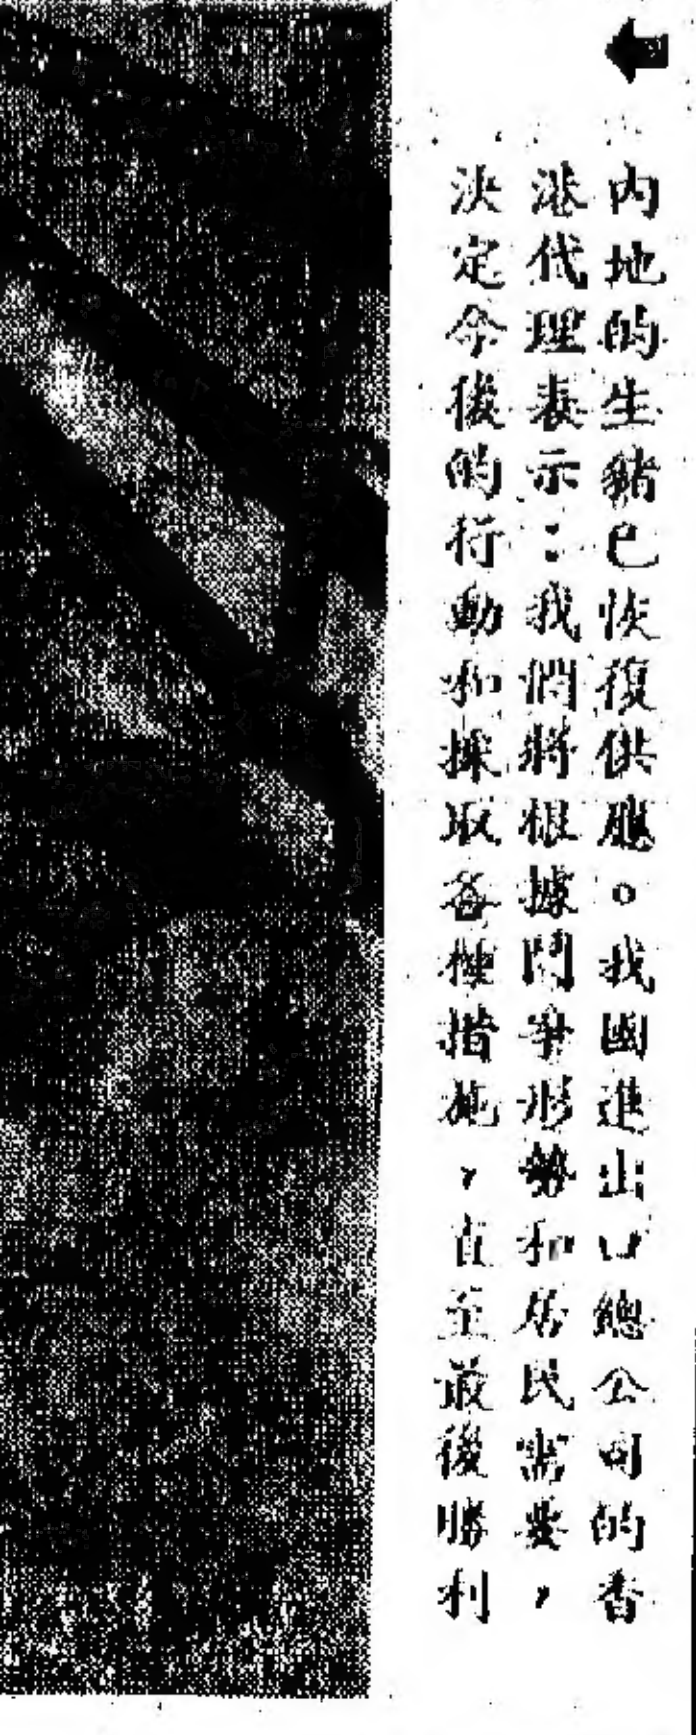 內地的生豬已恢復供應。我國進出口總公司的香
港代理表示：我們將根據鬥爭形勢和居民需要，
決定今後的行動和採取各種措施，直至最後勝利